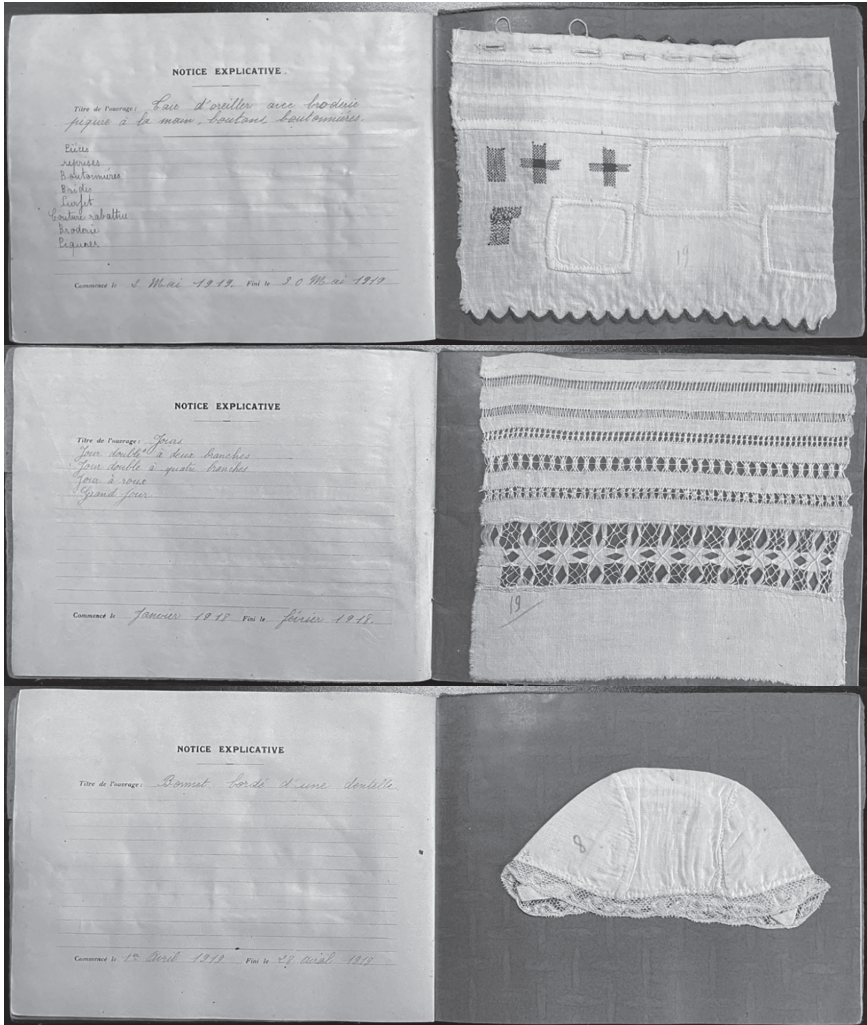 NOTICE EXPLICATIVE
Titre de l'ouvrage: Taie d'oreiller avec broderie
piqure à la main, boutons boutonnières.
Pièces
reprises
Boutonnières
Brides
Surjet
Couture rabattue
Broderie
Piqures
Commencé le 2 Mai 1919. Fini le 20 Mai 1919
19
NOTICE EXPLICATIVE
Titre de l'ouvrage: Jours
Jour double à deux branches
Jour double à quatre branches
Jour à roue
Grand jour
Commencé le Janvier 1918 Fini le février 1918.
19
NOTICE EXPLICATIVE
Titre de l'ouvrage: Bonnet bordé d'une dentelle
Commencé le 1er Avril 1919 Fini le 28 Avril 1919
8